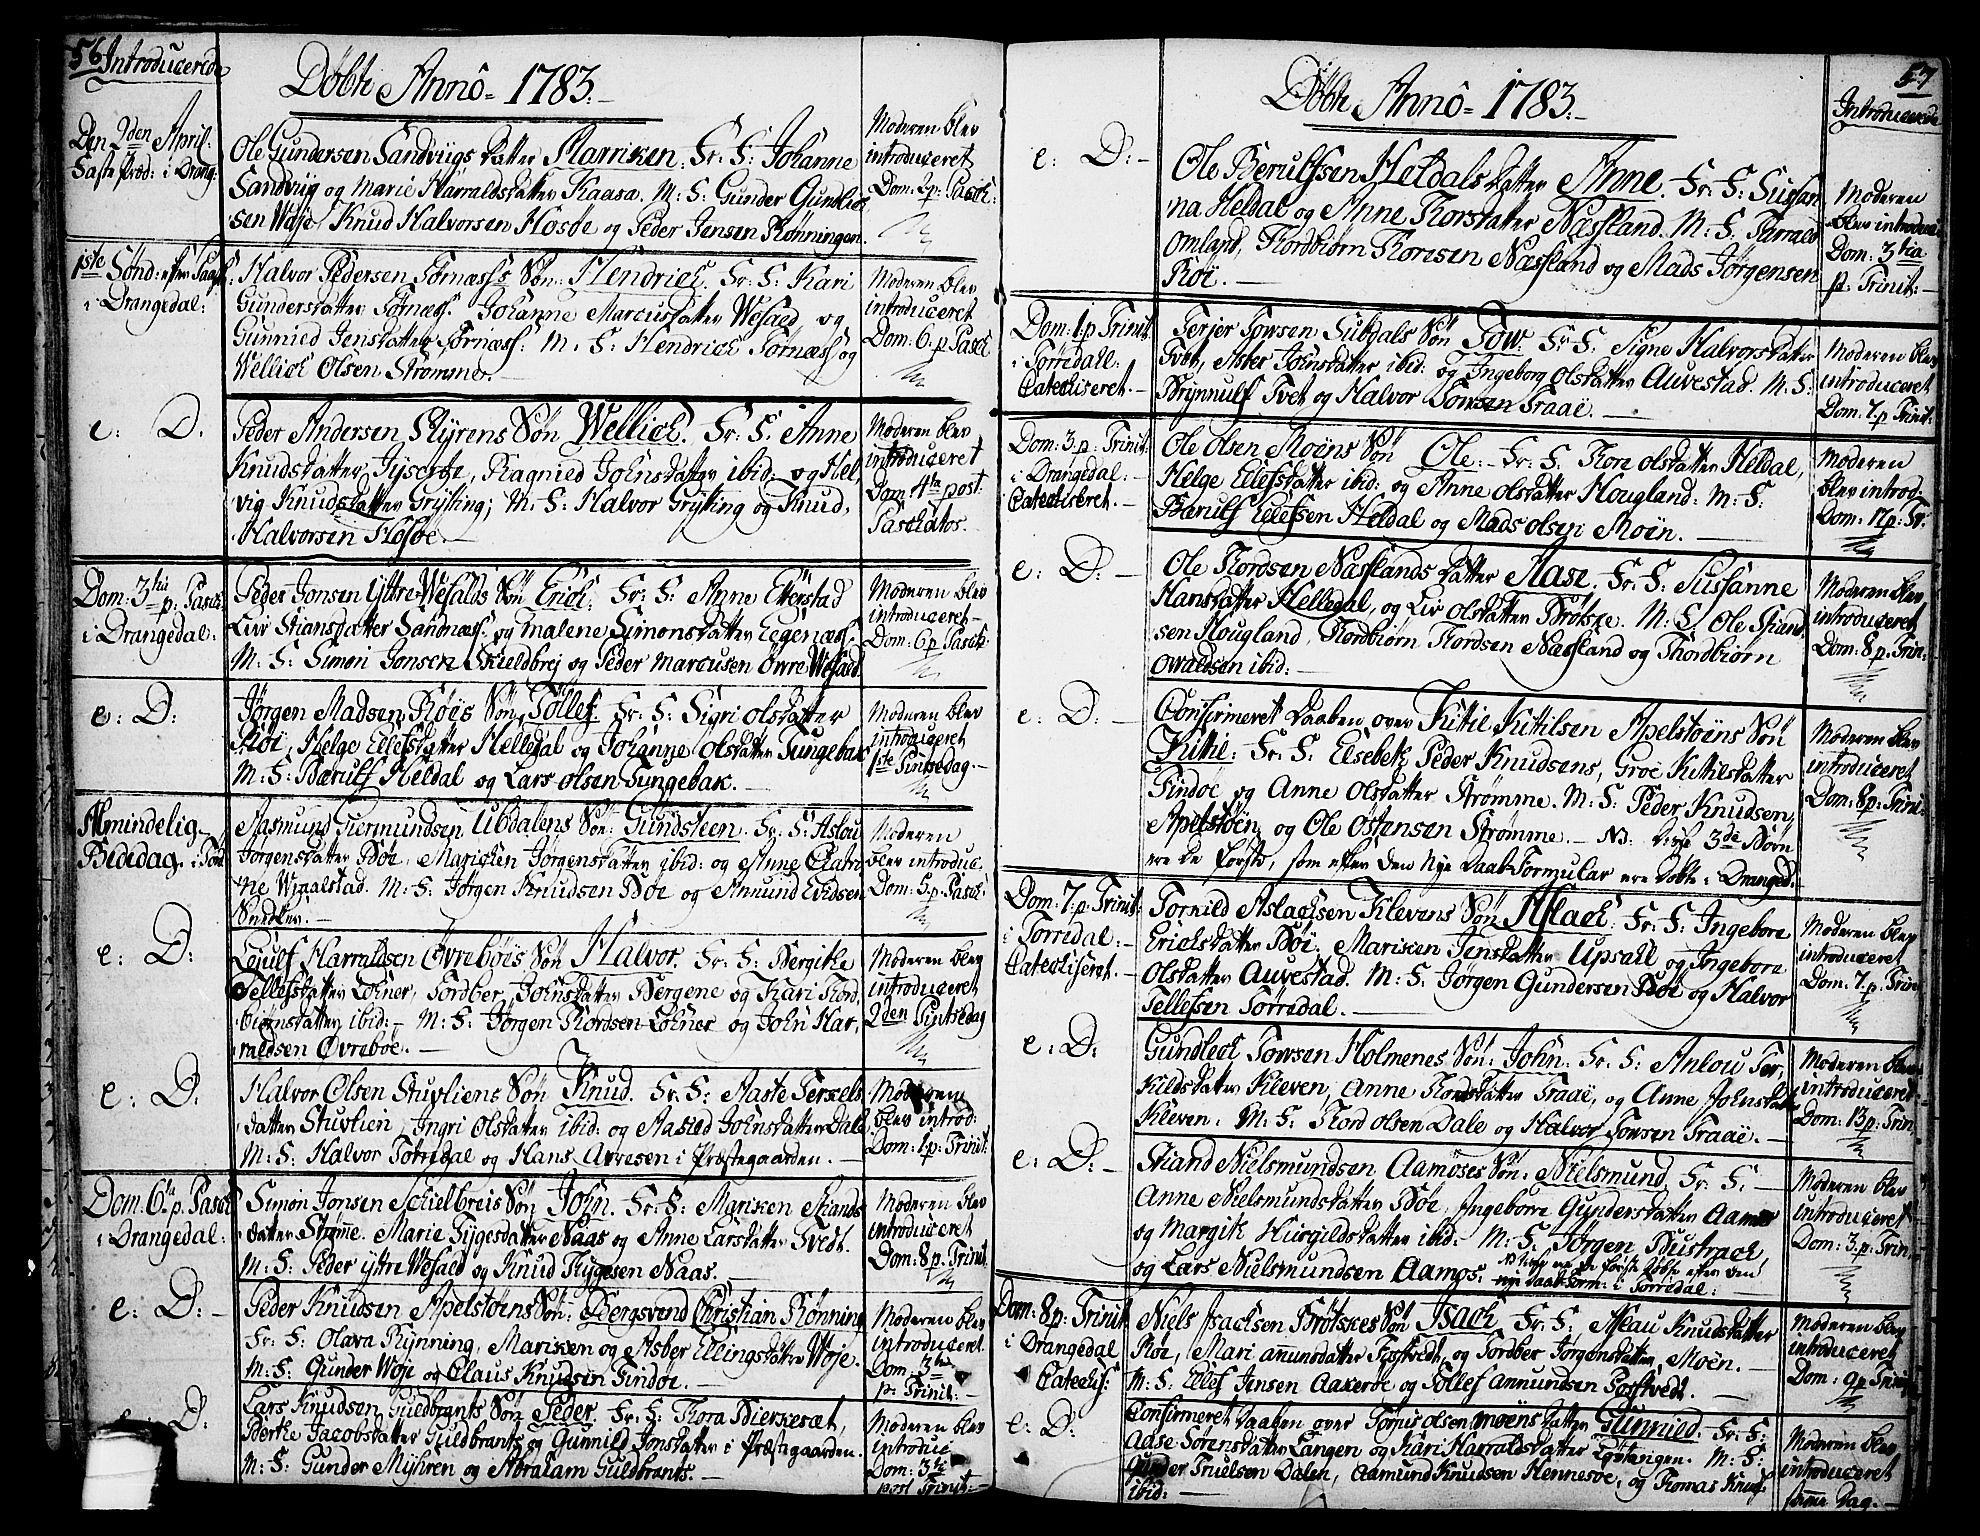 56 Introducerede
Döbte Annô = 1783.
Den 2den April.
Sidste Præd: i Drang:
Ole Gundersen Sandviigs Datter Marriken. Fr: S: Johanne
Sandviig og Marie Harraldsdatter Kaasa. M: S: Gunder Gundlich
sen Woje, Knud Halvorsen Hosøe og Peder Jensen Rønningen.
Moderen blev
introduceret
Dom: 2 p: Pasch:
1ste Sønd: efter Paasch:
i Drangedal:
Halvor Pedersen Tørnæss's Søn: Hendrich. Fr: S: Kari
Gundersdatter Tørnæss. Johanne Marcusdatter Wefald og
Gunnied Jensdatter Tørnæss: M: S: Hendrich Tørnæss og
Wellich Olsen Strømme.
Moderen blev
introduceret
Dom: 6. p Pasch
e: D.
Peder Andersen Slyrens Søn Wellich. Fr: S. Anne
Knudsdatter, Ragnied Johnsdatter ibid: og Hel
vig Knudsdatter Gryting; M: S: Halvor Gryting og Knud
Halvorsen Hosøe.
Moderen blev
introduceret
Dom: 4ta post
Paschatos.
Dom: 3tia p: Pasch
i Drangedal:
Peder Jonsen Yttre-Wefalds Søn Erich. Fr: S: Anne Etterstad
Liv Stiansdatter Sandnæss. og Malene Simonsdatter Eegenæss.
M: S: Simon Jonsen Skieldbrej og Peder Marcusen Øvre Wefald.
Moderen blev
introduceret
Dom: 6 p Pasch:
e: D:
Jørgen Madsen Röis Søn Tollef. Fr: S: Sigri Olsdatter
Röi, Helge Ellefsdatter Helledal og Johanne Olsdatter Tungebak
M: S: Bærulf Heldal og Lars Olsen Tungebak.
Moderen blev
introduceret
1ste Pintsedag.
Almindelig
Bededag. i Tør
Aasmund Giermundsen Ubdalens Søn: Gundsteen. Fr: S: Aslou
Jørgensdatter Bøe, Marichen Jørgensdatter ibid: og Anne Catri
ne Wraalstad. M: S: Jørgen Knudsen Bøe og Amund Evidsen
Snedker.
Moderen
blev introduc
Dom: 5. p: Pasch:
e: D:
Lojulf Harraldsen Øvrebøes Søn Halvor. Fr: S: Bergithe
Tellefsdatter Lohner, Tordber Johnsdatter Bergene og Kari Tord
biørnsdatter ibid: M: S: Jørgen Thordsen Lohner og John Har
raldsen Øvrebøe.
Moderen blev
introduceret
2den Pintsedag
e: D:
Halvor Olsen Stuvliens Søn Knud. Fr: S: Aaste Terkels
datter Stuvlien, Ingri Olsdatter ibid: og Aasild Johnsdatter Dale
M: S: Halvor Torredal og Hans Arresen i Præstegaarden.
Moderen
blev introd:
Dom: 1 p: Trinit:
Dom: 6ta p. Pasch
i Drangedal:
Simon Jonsen Schielbreis Søn John. Fr: S: Mariken Stiands
datter Strømme. Marie Tygesdatter Naas og Anne Larsdatter Tvedt.
M: S: Peder yttre Wefald og Knud Thygesen Naas.
Moderen blev
introduceret
Dom: 8 p. Trinit.
e: D:
Peder Knudsen Apelstøens Søn: Bergsvend Christian Rønning
Fr: S: Olava Rynning, Mariken og Asber Ellingsdatter Woje.
M: S: Gunder Woje og Claus Knudsen Tindøe.
Moderen blev
introduceret
Dom: 3tia
p: Trinit:
e: D:
Lars Knudsen Guldbrants Søn Peder. Fr: S: Thora Bierkesæt,
Berthe Jacobsdatter Guldbrants og Gunnild Jonsdatter i Præstegaarden.
M: S: Gunder Myhren og Abraham Guldbrants.
Moderen blev
introduc
Dom: 3tia
post Trinit:
57
Döbte Annô = 1783.
Introducerede
e: D:
Ole Berulfsen Heldals Datter Anne. Fr: S: Sussan
na Heldal og Anne Thorsdatter Næssland. M: S: Harrald
Omland, Thordbiørn Thoresen Næssland og Mads Jørgensen
Röi.
Moderen
blev introduc
Dom: 3tia
p: Trinit:
Dom: 1. p Trinit:
i Torredall:
Catechiseret.
Terjer Towsen Subdals Søn Tow. Fr: S: Signe Halvorsdatter
Tvet, Asber Johnsdatter ibid: og Ingeborg Olsdatter Auvestad. M: S:
Brynnulf Tvet og Halvor Towsen Traaë.
Moderen blev
introduceret
Dom: 7. p Trinit:
Dom: 3. p. Trinit:
i Drangedal:
Catechiseret.
Ole Olsen Moëns Søn Ole: Fr: S. Thore Olsdatter Heldal,
Helge Ellefsdatter ibid: og Anne Olsdatter Hougland: M: S:
Bærulf Ellefsen Heldal og Mads Olsen Moën.
Moderen
blev introd:
Dom: 17 p: Tr:
e: D:
Ole Thordsen Næsslands Datter Aase. Fr: S: Sussanne
Hansdatter Helledal, og Liv Olsdatter Brötske. M: S: Ole Stiand
sen Hougland, Thordbiørn Thordsen Næssland og Thordbiørn
Ovaldsen ibid:
Moderen blev
introduceret
Dom: 8 p: Trin:
e: D:
Confirmeret Daaben over Kittil Kittilsen Apelstøens Søn
Kittil: Fr: S: Elsebeth Peder Knudsens, Groe Kittilsdatter
Tindøe og Anne Olsdatter Strømme. M: S: Peder Knudsen,
Apelstøen, og Ole Ostensen Strømme. NB: disse 3de Børn
ere de første, som efter den Nye Daab-Formular ere døbte i Dranged:
Moderen blev
introduceret
Dom: 8 p: Trini:
Dom: 7. p. Trinit:
i Torridal:
Catechiseret.
Tornild Aslachsen Klevens Søn Aslach. Fr: S: Ingeborg
Erichsdatter Bøi. Mariken Jensdatter Upsall og Ingeborg
Olsdatter Auvestad. M: S: Jørgen Gundersen Bøe og Halvor
Tellefsen Torredal.
Moderen blev
introduceret
Dom: 7. p. Trin
e: D:
Gundlech Towsen Holmenes Søn: John. Fr: S: Anlou Ter,
kildsdatter Kleven, Anne Thordsdatter Traaë, og Anne Johnsdatter
Kleven. M: S: Thord Olsen Dale og Halvor Towsen Traaë.
Moderen blev
introduceret.
Dom: 13 p: Trin.
e: D:
Stiand Nielsmundsen Aamöses Søn: Nielsmund. Fr: S:
Anne Nielsmundsdatter Bøe, Ingeborre Gundersdatter Aamos
og Margith Husgildsdatter ibid: M: S: Jørgen Bustrach,
og Lars Nielsmundsen Aamos. NB disse ere de første døbte efter den
nye Daab-Form: i Torridal:
Moderen blev
introduceret
Dom: 3. p. Trin.
Dom: 8 p: Trinit
i Drangedal
Catechis:
Niels Isachsen Brötskes Søn Isach. Fr: S: Aslau Knudsdatter
Röi, Mari Amunsdatter Tostvedt, og Tordber Jørgensdatter Moën.
M: S: Ellef Jensen Aakeröe og Tollef Amundsen Tostvedt.
Moderen blev
introduceret
Dom: 9 p Trinit
e: D:
Confirmeret Daaben over Tomis Olsen Moëns Datter Gunnild. Fr: S:
Aase Sørensdatter Langen og Kari Harraldsdatter Løvtangen. M: S:
Gunder Truelsen Dalen, Aamund Knudsen Hennesøe, og Thomas Knuds
ibid:
Moderen blev
introduceret
samme Dag.